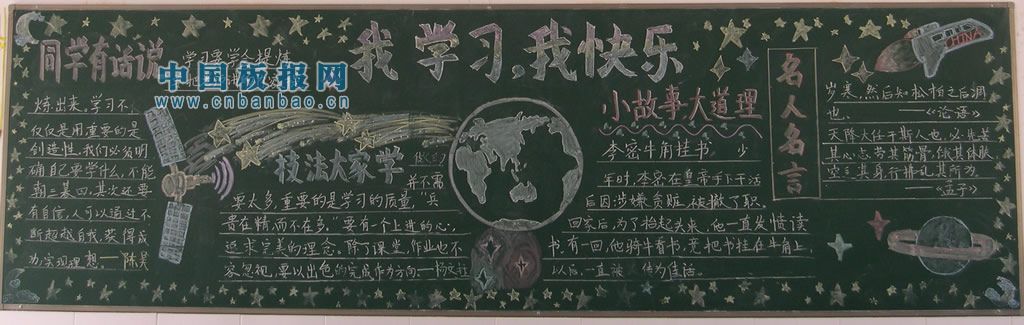 我学习、我快乐
同学有话说
学习要学会
中国板报网
www.cnbanbao.cn
炼出来,学习不
仅仅是用重要的是
创造性,我们必须明
确自己要学什么,不能
朝三暮四,其次还要
有自信,人可以通过不
断超越自我,获得成
功,实现理想。——陈昊
技法大家学
我们
并不需
要太多,重要的是学习的质量,“兵
贵在精,而不在多。”要有一个上进的心,
追求完美的理念。除了课堂,作业也不
容忽视,要以出色的完成作为方向——杨
小故事大道理
李密牛角挂书
少
年时,李密在皇帝手下干活
后因涉嫌贪赃,被撤了职。
回家后,为了抬起头来,他一直发愤读
书,有一回,他骑牛看书,竟把书挂在牛角上,
以后,一直被传为佳话。
名人名言
CHINA
岁寒,然后知松柏之后凋
也。——《论语》
天降大任于斯人也,必先苦
其心志,劳其筋骨,饿其体肤,
空乏其身,行拂乱其所为。
——《孟子》